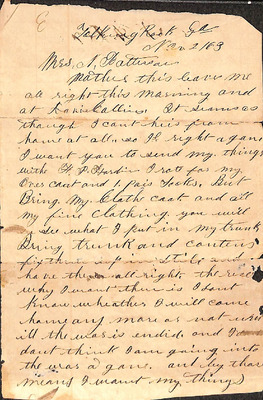 Talking Rock Ga
Nov 2 / 63
Mrs, N, Patterson
Mother this leave me
all right this Marning and
at Collins. It seams as
though I cant heir from
home at all, so Il right agane
I want you to send my things
with H. P. I rote for my
Over coat and 1, pair Socks, But
Bring My Cloth coat and all
my fine Clothing. you will
See what I put in my trunk
Bring trunk and contens
fix them up in Stile and
have them all right. the reason
why I want them is I dont
Know wheather I will come
home any more or not untill
ill the war is ended. and I
dont think I am going into
the war a gane. and by that
means I waunt my things